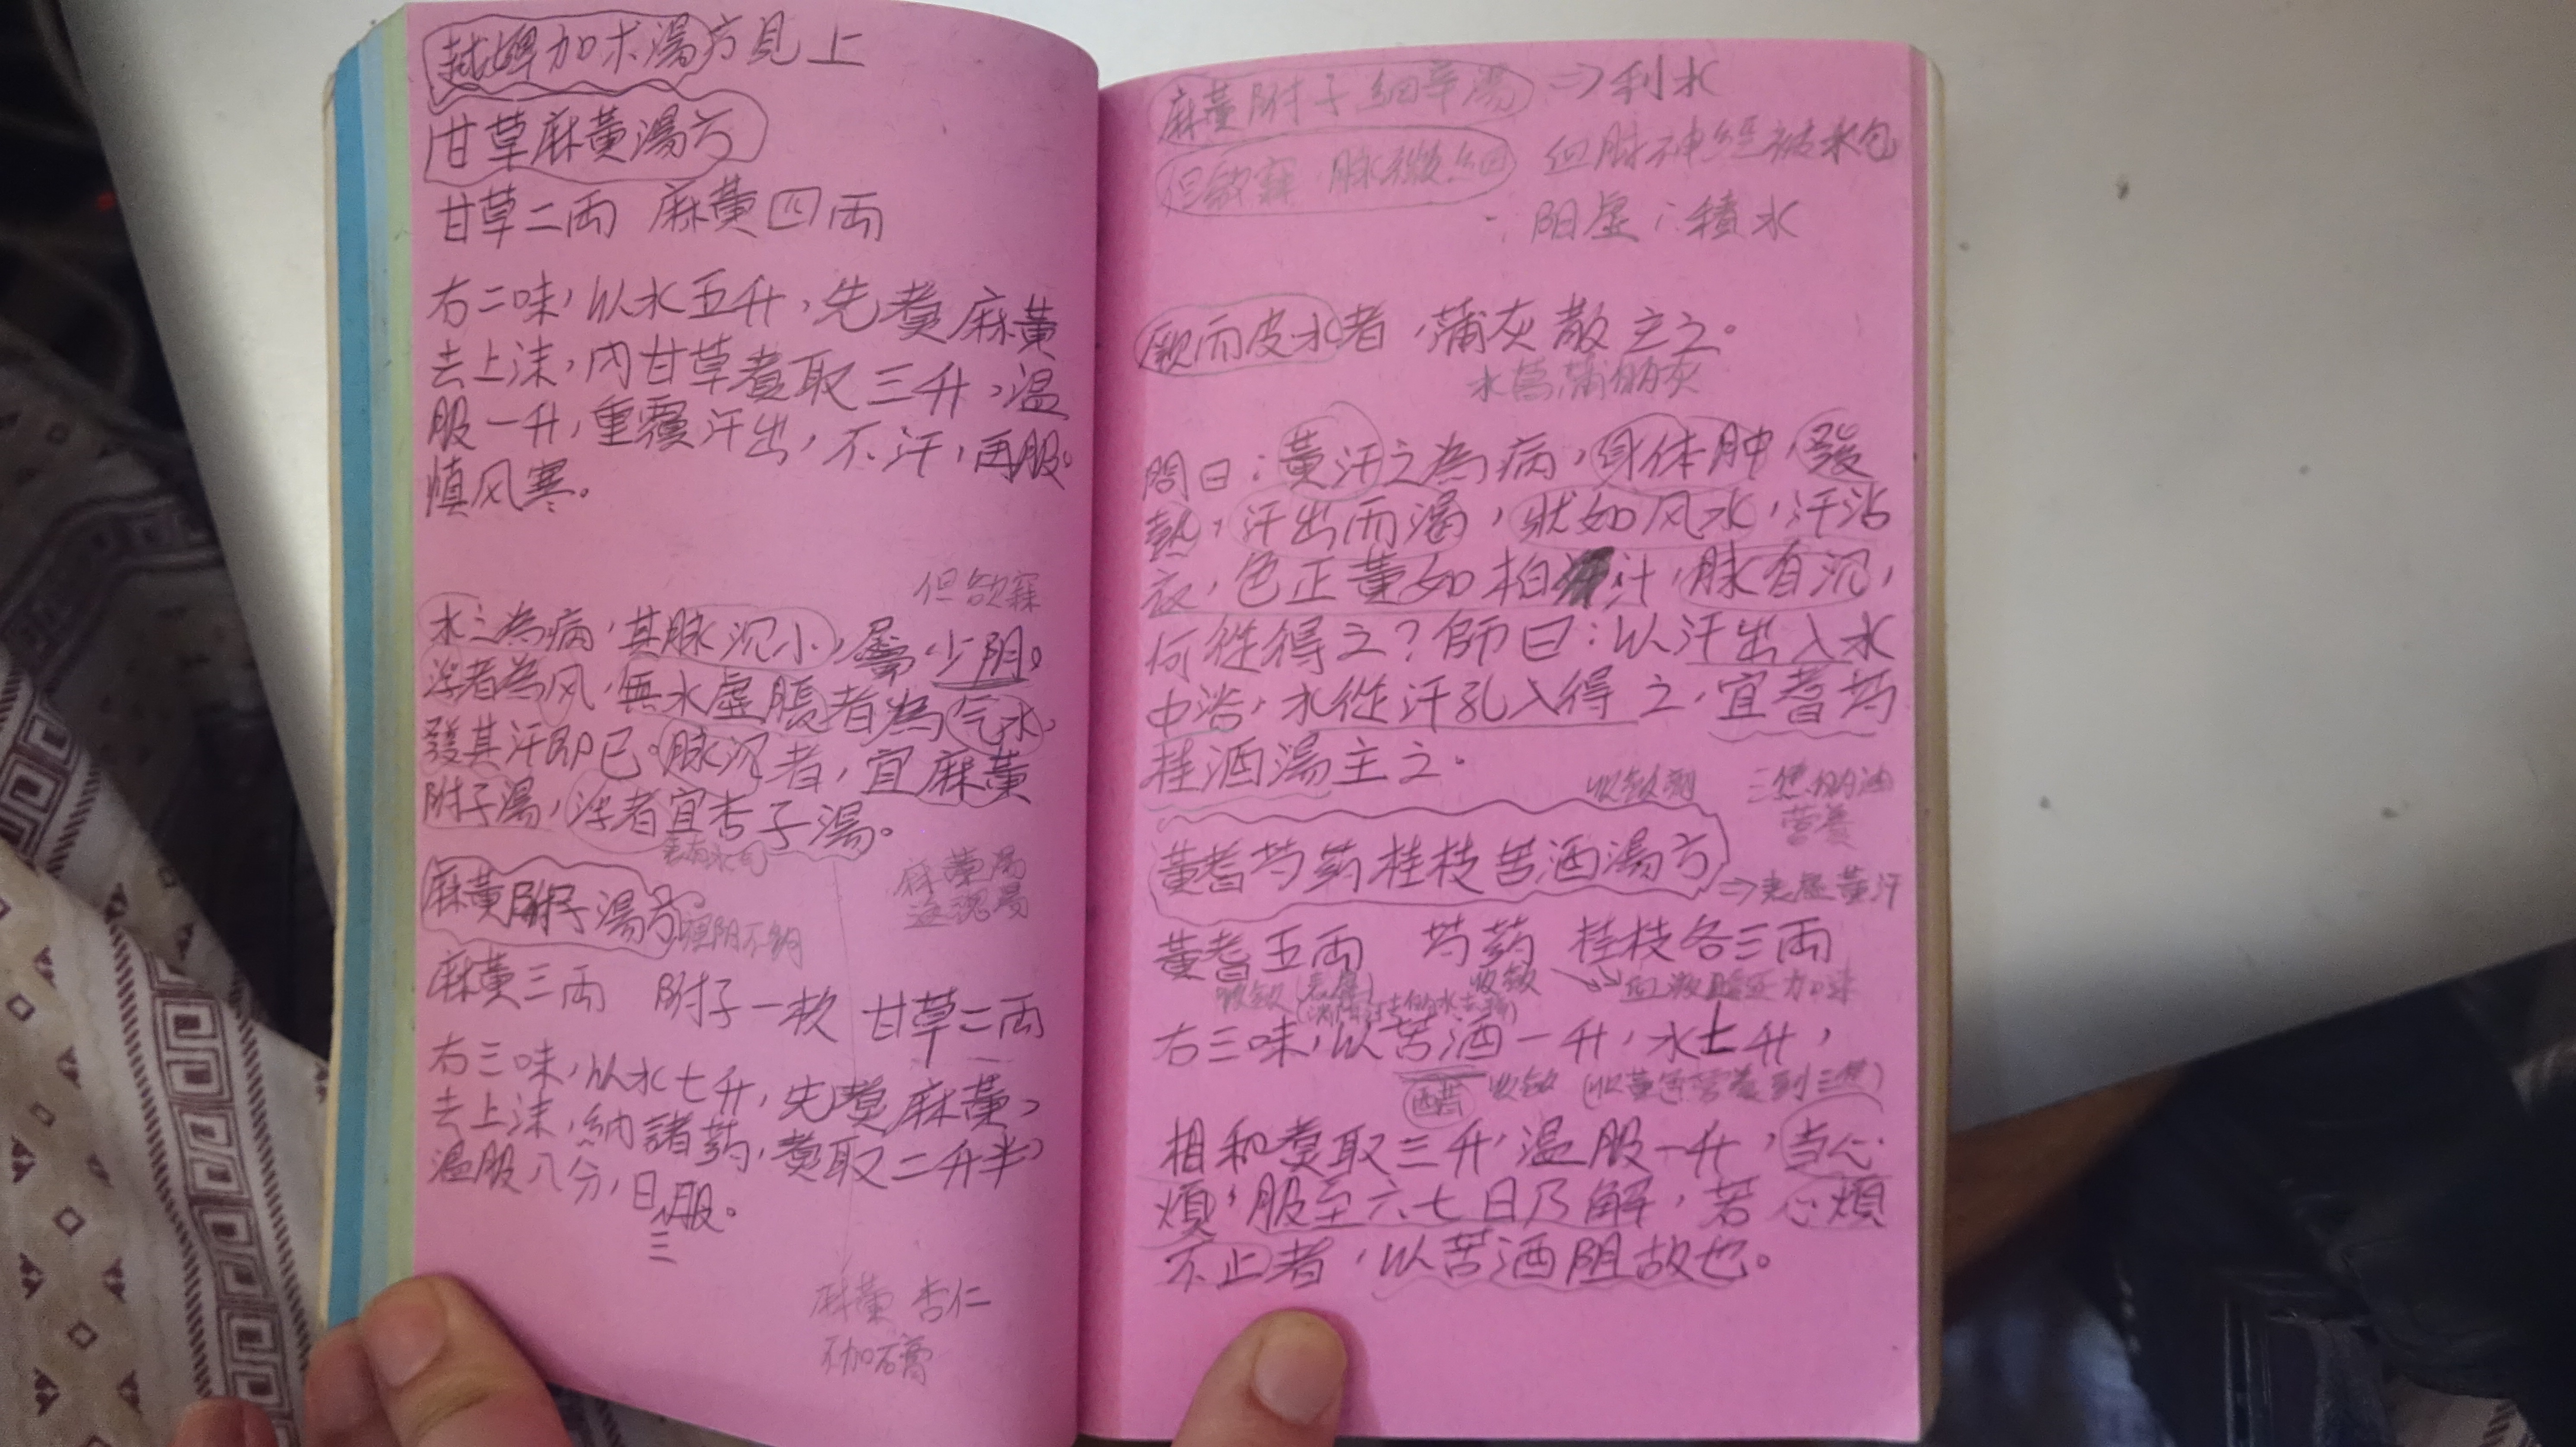 越婢加术湯方見上
甘草麻黃湯方
甘草二两 麻黃四两
右二味，以水五升，先煮麻黃
去上沫，内甘草煮取三升，温
服一升，重覆汗出，不汗，再服。
慎风寒。
但欲寐
水之為病，其脉沉小，屬少阴。
浮者為风，無水虛脹者為气水，
發其汗即已。脉沉者，宜麻黃
附子湯，浮者宜杏子湯。
麻黃湯
还魂湯
麻黃附子湯方。
麻黃三两 附子一枚 甘草二两
右三味，以水七升，先煮麻黃，
去上沫，納諸药，煮取二升半，
温服八分，日三服。
麻黃 杏仁
不加石膏
麻黃附子細辛湯 ⇒利水
但欲寐 脉微細 血脉神经被水包
∵阳虛∴積水
厥而皮水者，蒲灰散主之。
水菖蒲的灰
問曰：黃汗之為病，身体肿，發
热，汗出而渴，狀如风水，汗沾
衣，色正黃如柏汁，脉自沉，
何從得之？師曰：以汗出入水
中浴，水從汗孔入得之，宜耆芍
桂酒湯主之。
收斂剂 三焦的油
营养
黃耆芍药桂枝苦酒湯方
⇒表虛黃汗
黃耆五两 芍药 桂枝各三两
收斂 (表虛) 收斂
右三味，以苦酒一升，水七升，
醋 收斂 (收黃色营养到三焦)
相和煮取三升，温服一升，当心
煩，服至六七日乃解，若心煩
不止者，以苦酒阻故也。